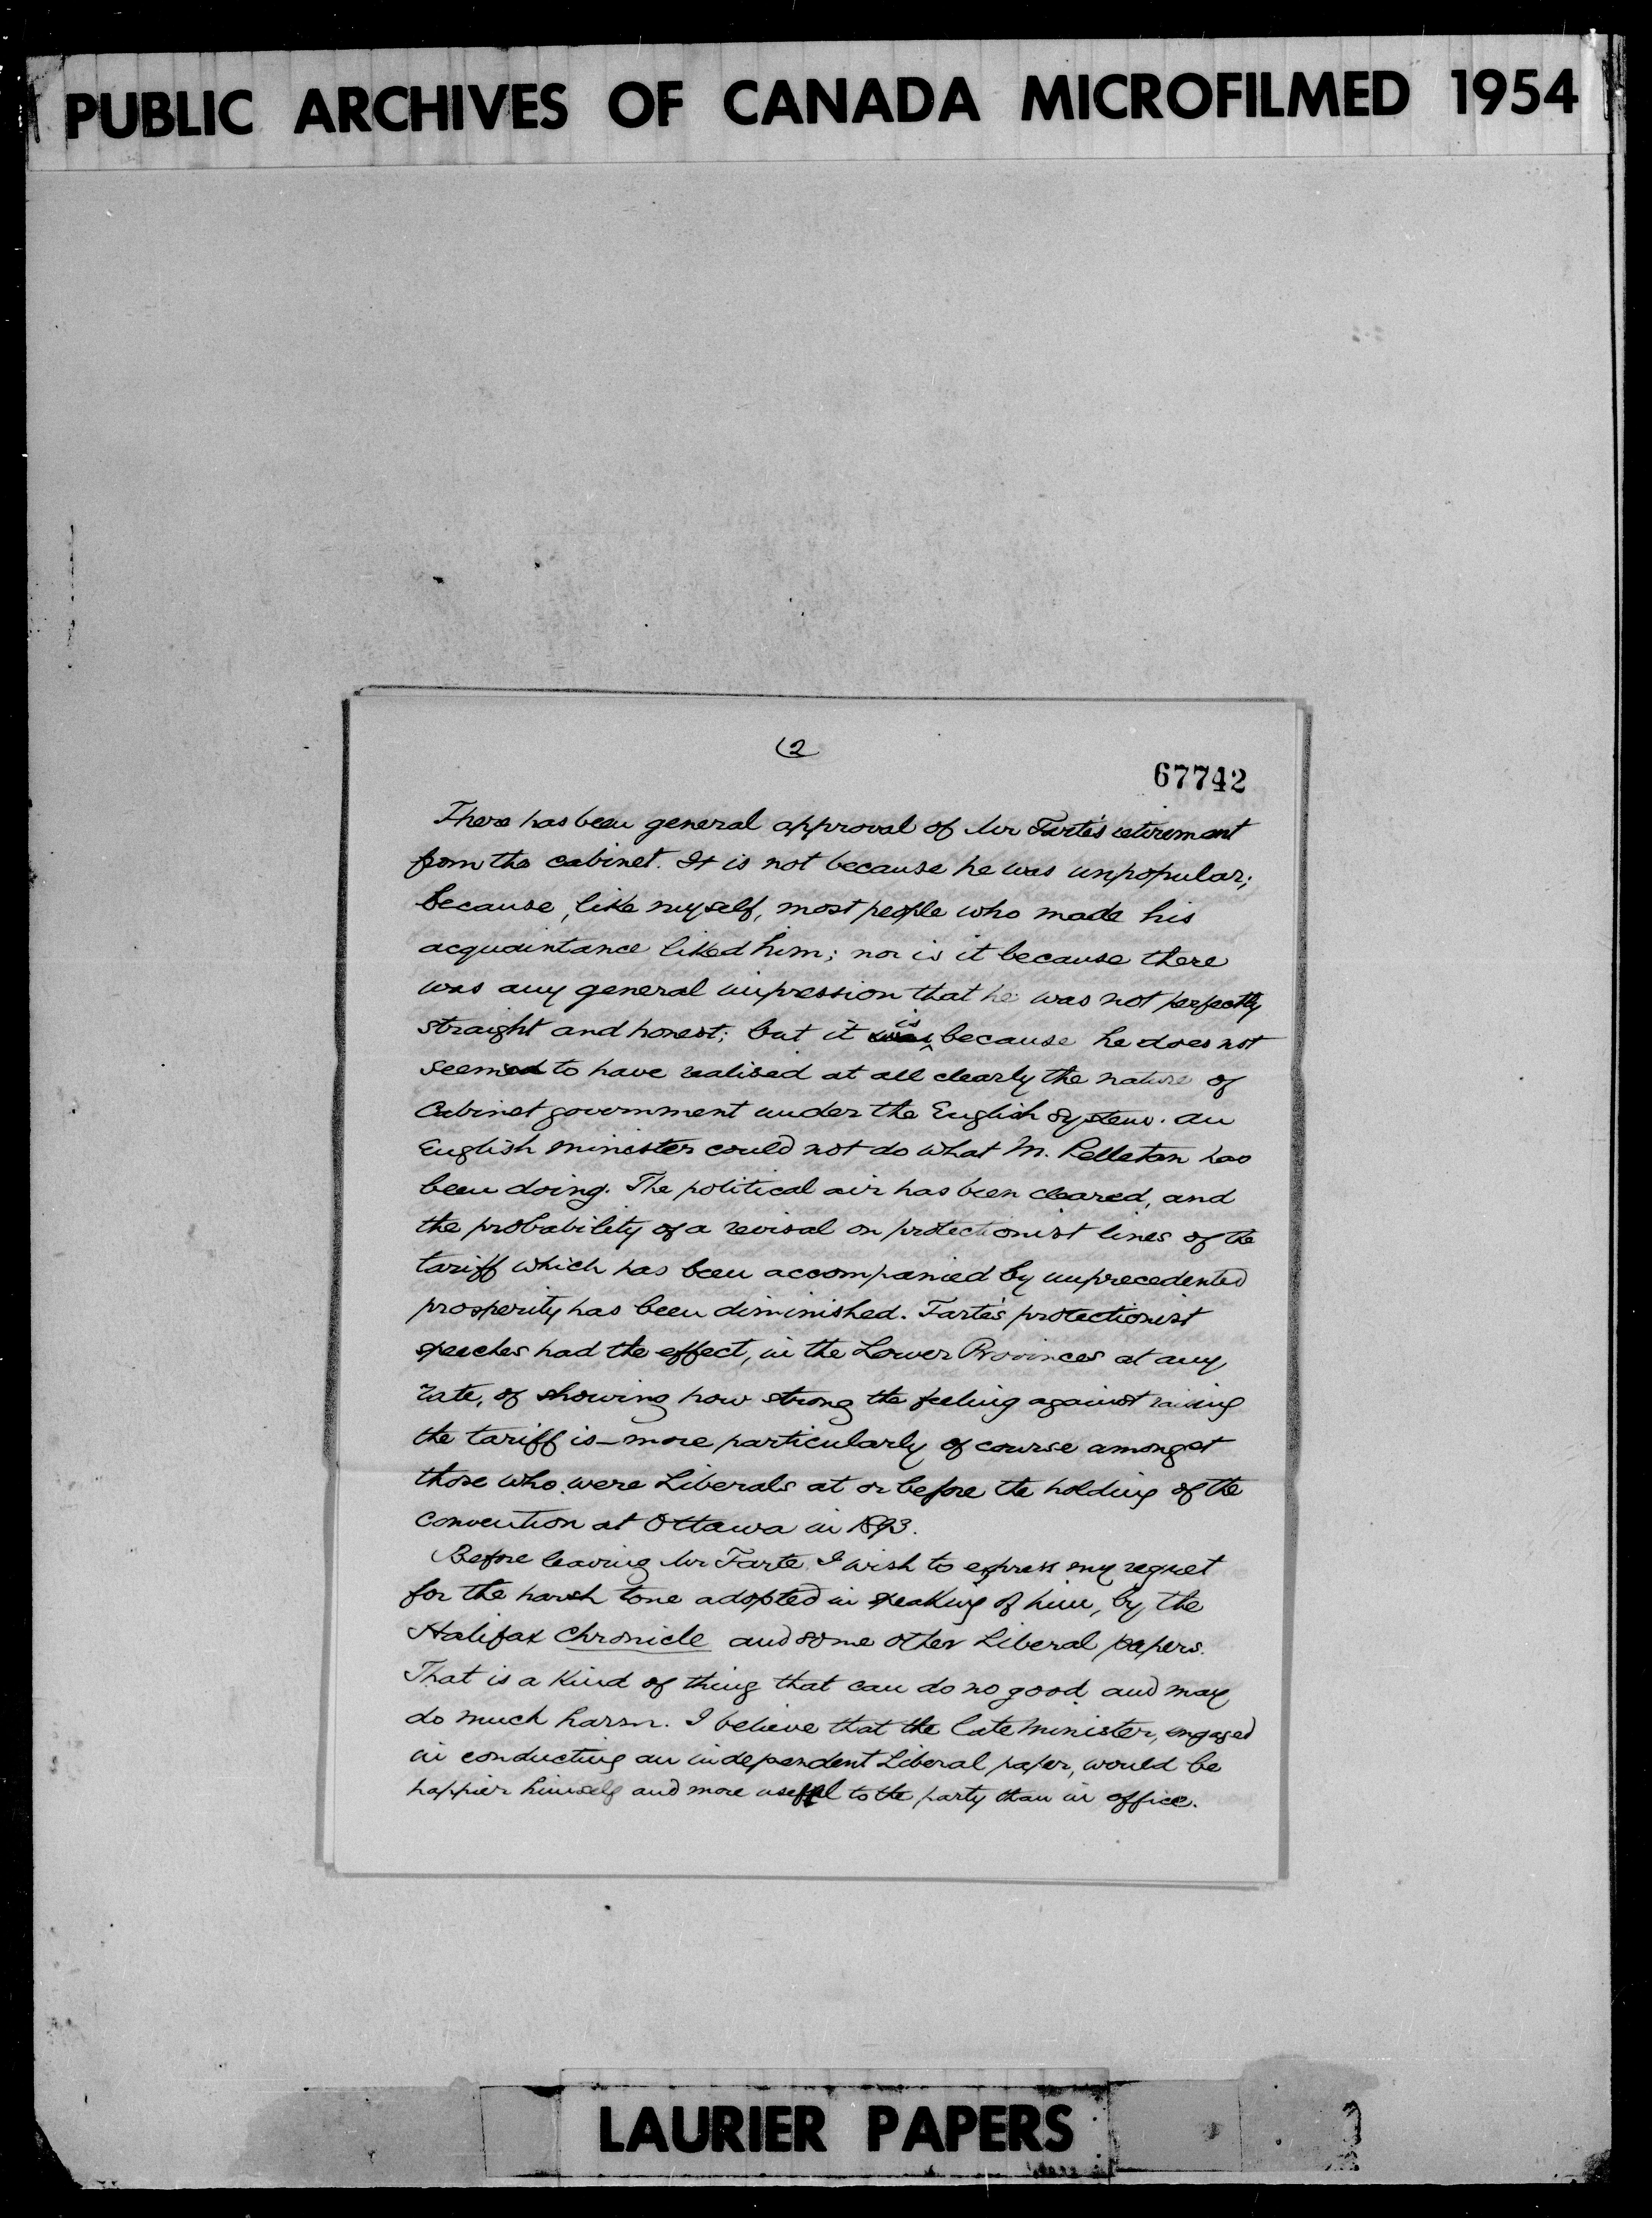 PUBLIC ARCHIVES OF CANADA MICROFILMED 1954
(2
67742
There has been general approval of Mr Tarte's retirement
from the cabinet. It is not because he was unpopular;
because, like myself, most people who made his
acquaintance liked him; nor is it because there
was any general impression that he was not perfectly
is
straight and honest; but it was because he does not
seemed to have realised at all clearly the nature of
Cabinet government under the English system. An
English minister could not do what M. Pelletan has
been doing. The political air has been cleared, and
the probability of a revisal on protectionist lines of the
tariff which has been accompanied by unprecedented
prosperity has been diminished. Tarte's protectionist
speeches had the effect, in the Lower Provinces at any
rate, of showing how strong the feeling against raising
the tariff is—more particularly of course amongst
those who were Liberals at or before the holding of the
convention at Ottawa in 1893.
Before leaving Mr Tarte I wish to express my regret
for the harsh tone adopted in speaking of him, by the
Halifax Chronicle and some other Liberal papers.
That is a kind of thing that can do no good and may
do much harm. I believe that the late minister, engaged
in conducting an independent Liberal paper, would be
happier himself and more useful to the party than in office.
LAURIER PAPERS